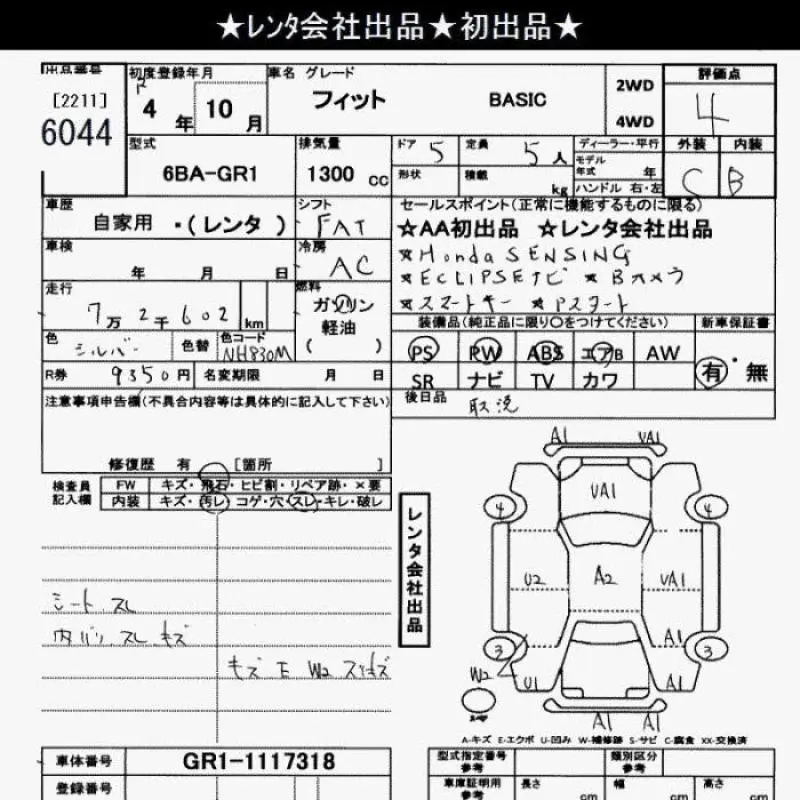 ★レンタ会社出品★初出品★
出品番号
[2211]
6044
初度登録年月
R 4年 10月
車名 グレード
フィット BASIC
2WD
4WD
評価点
4
型式
6BA-GR1
排気量
1300 cc
ドア 5
定員 5人
形状
積載 kg
ディーラー・平行
モデル年式 年
ハンドル 右・左
外装 内装
C B
車歴
自家用 ・(レンタ )
シフト
FAT
セールスポイント(正常に機能するものに限る)
☆AA初出品 ☆レンタ会社出品
★Honda SENSING
★ECLIPSEナビ ★Bカメラ
★スマートキー ★Pスタート
車検
年 月 日
冷房
AC
走行
7万2千602 km
燃料
ガソリン
軽油
( )
装備品(純正品に限り○をつけてください)
新車保証書
色 シルバー
色替
色コード
NH830M
PS PW ABS エアB AW
SR ナビ TV カワ
有・無
R券 9350円
名変期限 月 日
後日品 取説
注意事項申告欄(不具合内容等は具体的に記入して下さい)
修復歴 有 [箇所 ]
検査員記入欄
FW キズ・飛石・ヒビ割・リペア跡・×要
内装 キズ・汚レ・コゲ・穴・スレ・キレ・破レ
レンタ会社出品
シート スレ
内バリ スレ キズ
キズ E W2 スリキズ
A1 VA1
VA1
4 4
U2 A2 VA1
3 A1 3
W2 U1 A1
A1 A1
A-キズ E-エクボ U-凹み W-補修跡 S-サビ C-腐食 XX-交換済
車体番号 GR1-1117318
登録番号
型式指定番号 参考
類別区分 参考
車庫証明用 参考
長さ cm
幅 cm
高さ cm